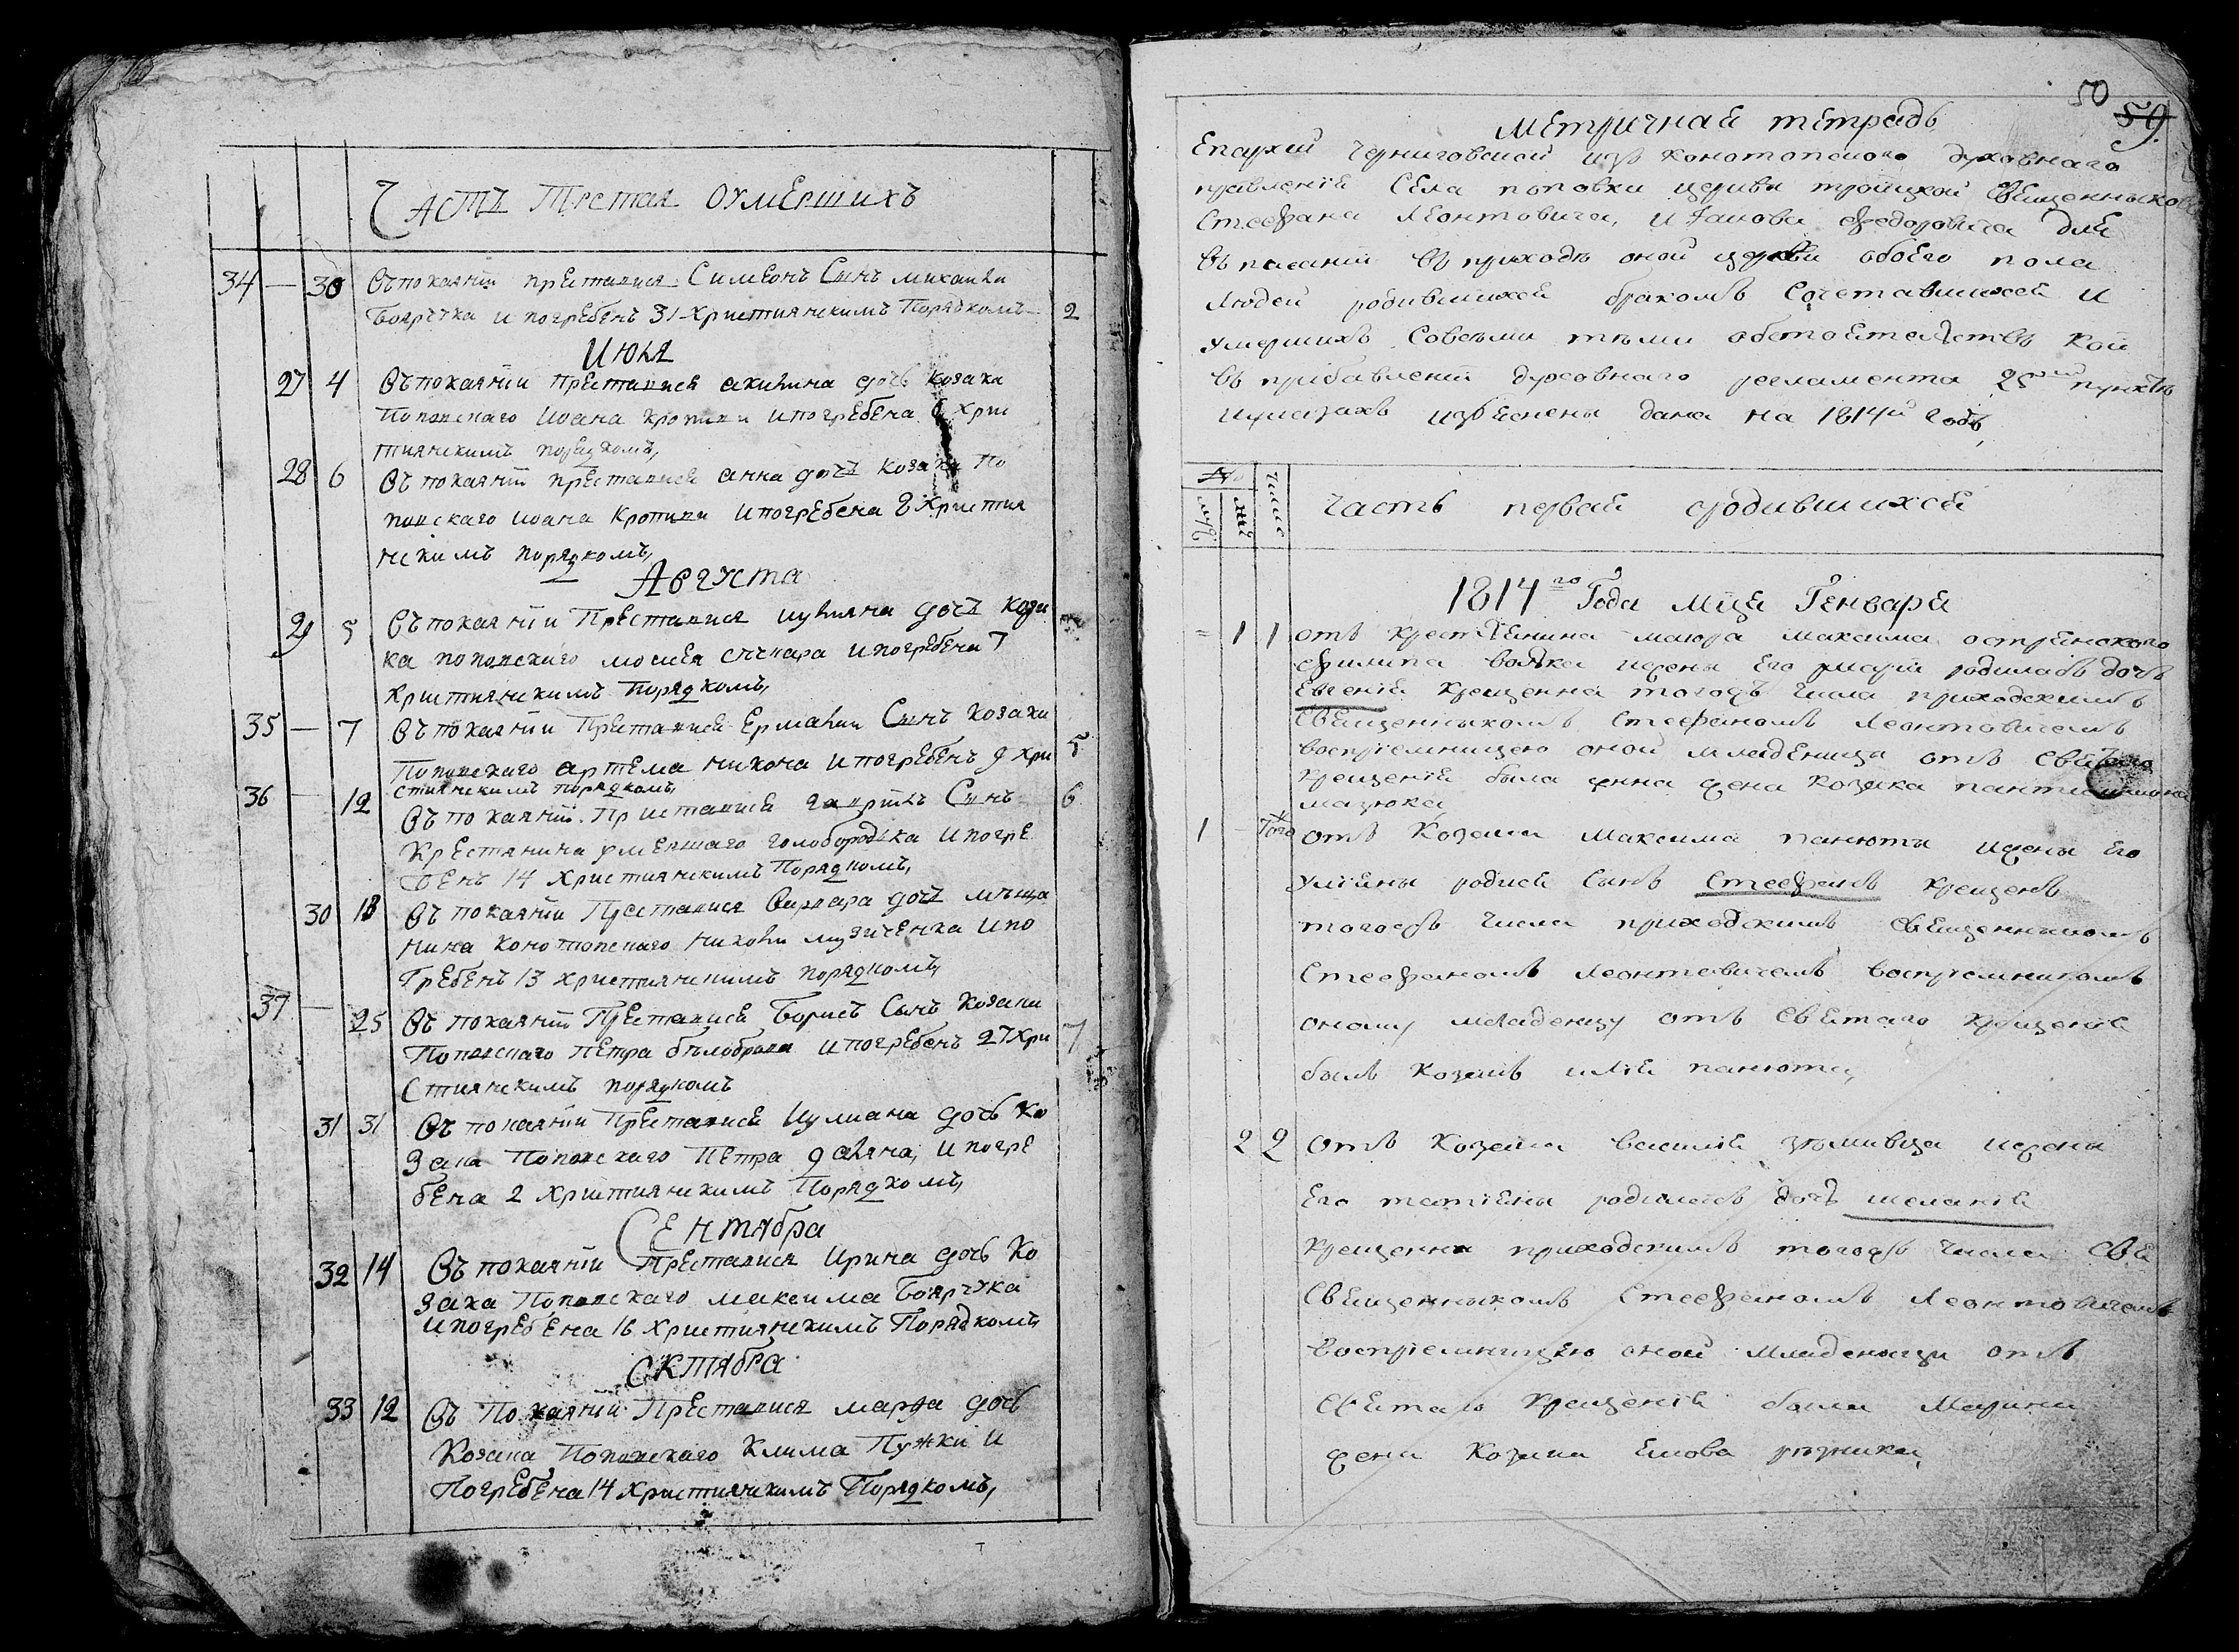 ЧАСТЬ Третая ОУМЕРШИХЪ
34 — 30 Въ покаянїи преставися Симеонъ Сынъ михаила
Боярчука и погребенъ 31 Християнскимъ Порядкомъ — 2
ИЮЛЯ
27 4 Въ покаянїи преставися акилина дочь козака
Поповскаго иоана кропивы и погребена 6 хри
тиянскимъ порядкомъ,
28 6 Въ покаянїи преставися анна дочь козака По
повскаго иоана Кропивы и погребена 8 Христия
нскимъ порядкомъ,
Августа
29 5 Въ покаянїи Преставися иулияна дочь коза
ка поповскаго мосиея и погребена 7
християнскимъ Порядкомъ,
35 — 7 Въ покаянїи Преставися Ермалии Сынъ козака
Поповскаго артема никона и погребенъ 9 хри 5
стиянскимъ порядкомъ,
36 — 12 Въ покаянїи Приставися гаврїилъ Сынъ 6
Крестянина умершаго голобородка и погре
бенъ 14 християнскимъ Порядкомъ,
30 18 Въ покаянїи Преставися Варвара дочь мѣща
нина конотопскаго николи музиченка и по
гребенъ 13 християнскимъ порядкомъ,
37 — 25 Въ покаянїи Преставися Борисъ Сынъ Козака
Поповскаго петра бѣлоброва и погребенъ 27 Хри 7
стиянскимъ порядкомъ
31 31 Въ покаянїи Преставися Иулиана дочь ко
зака Поповскаго Петра и погре
бена 2 християнскимъ Порядкомъ,
СЕнтября
32 14 Въ покаянїи Преставися Ирина дочь Ко
зака Поповскаго максима Боярчука
и погребена 16 християнскимъ Порядкомъ,
Октября
33 12 Въ Покаянїи Преставися марѳа дочь
Козака Поповскаго Клима Пужки и
Погребена 14 християнскимъ Порядкомъ,
50
59
Метричная тетрадь
Епархїи Черниговской изъ конотопского духовнаго
правленїя Села поповки церкви тройцкой Священникови
Стефана Леонтовича, и Iакова федоровича для
въписанїи въ приходѣ оной церкви обоего пола
людей родившихся бракомъ Сочетавшихся и
умершихъ Совсѣми тѣми обстоятелствъ кои
въ прибавленїи духовнаго регламента 25 пунктѣ
изяснены дана на 1814й годъ,
№ число
муж же Часть первая родившихся
1814го Года мца Генваря
= 1 1 отъ крестянина маюра максима острянского
филипа войка и жены его марїи родилась дочь
Евгенїя крещенна тогожъ числа приходскимъ
Священникомъ Стефаномъ Леонтовичемъ
воспрїемницею оной младеницы отъ Святаго
крещенїя была анна жена козака пантелимона
мазюка,
1 — Того отъ козака Максима панюты и жены его
Улїяны родися сынъ Стефанъ крещенъ
тогожъ числа приходскимъ Священникомъ
Стефаномъ Леонтовичемъ воспрїемникомъ
оному младенцу отъ Святаго крещенїя
былъ козакъ илїя панюта,
2 2 отъ козака василїя и жены
Его татїяны родилась дочъ меланїя
крещенна приходскимъ тогожъ числа Свя
Священникомъ Стефаномъ Леонтовичемъ
воспрїемницею оной младеницы отъ
Святаго крещенїя была Марина
жена козака Якова рѣзника,